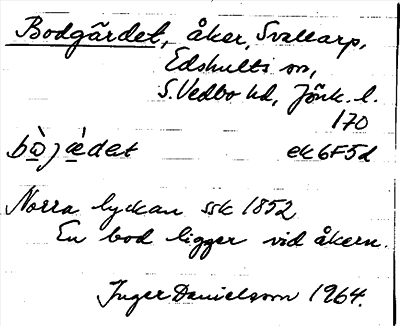 Bodgärdet, åker, Svallarp,
Edshults sn,
S. Vedbo hd, Jönk. l.
170
bὼjæ̀det ek 6F5d
Norra lyckan ssk 1852
En bod ligger vid åkern.
Inger Danielsson 1964.